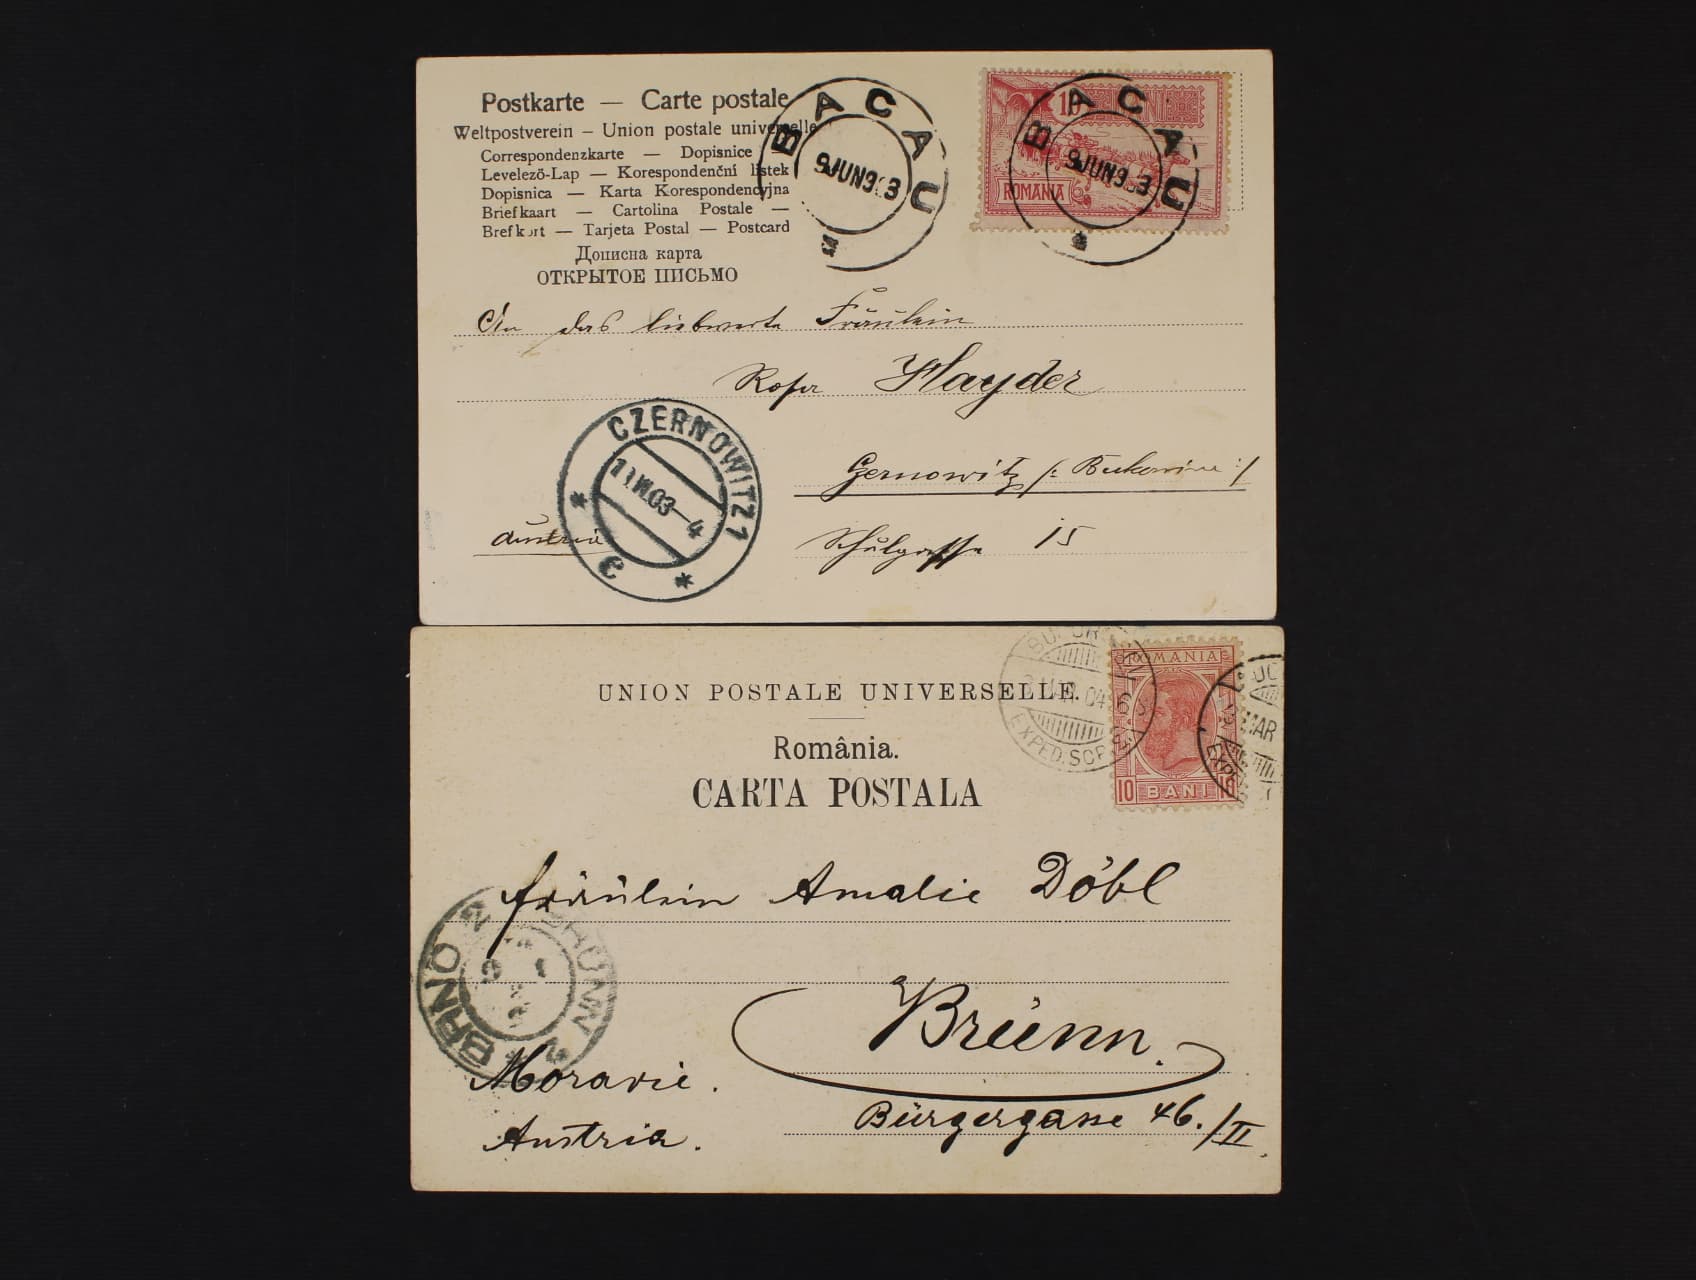 Postkarte — Carte postale
Weltpostverein – Union postale universelle
Correspondenzkarte — Dopisnice
Levelező-Lap — Korespondenční lístek
Dopisnica — Karta Korespondencyjna
Briefkaart — Cartolina Postale —
Brefkort — Tarjeta Postal — Postcard
Дописна карта
ОТКРЫТОЕ ПИСЬМО
BACAU
9 JUN 903
ROMANIA
BACAU
9 JUN 903
An das liebwerte Fräulein
Rosa Hayder
Czernowitz /: Bukowina :/
Schulgasse 15
Austria
CZERNOWITZ 1
11 VI 03—4
UNION POSTALE UNIVERSELLE.
România.
CARTA POSTALA
ROMANIA
10 BANI 10
04
EXPED. SCR
MAR
Fräulein Amalie Döbl
Brünn.
Bürgergasse 46./II
Moravie.
Austria.
BRÜNN 2
BRNO 2